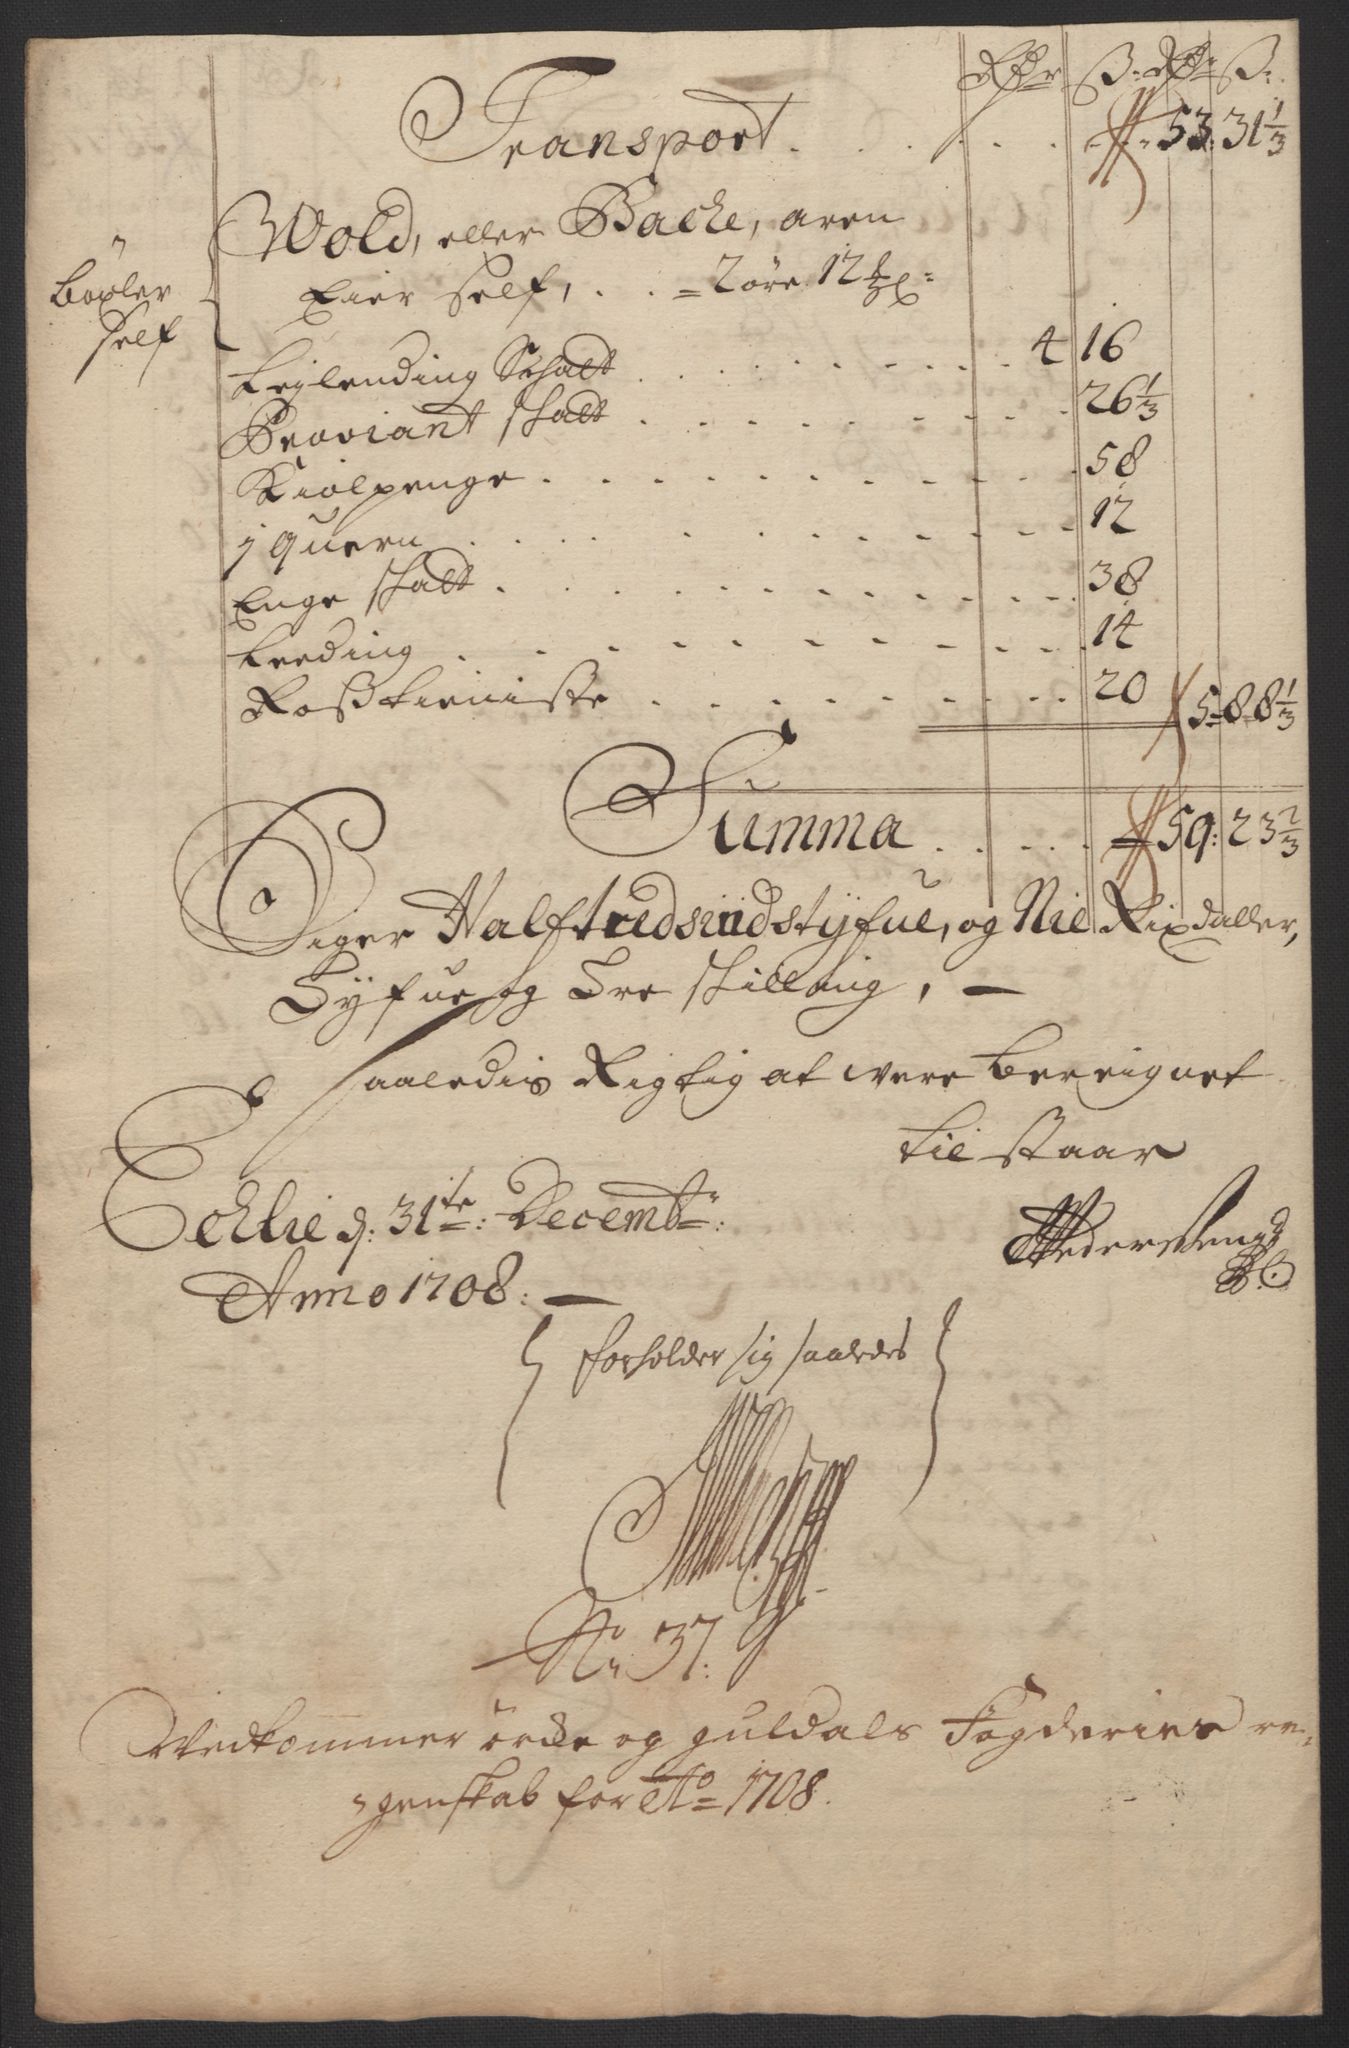 Rdr ß Rdr ß
Transport . . . . . . 53: 31 1/3
Wold, eller Bache, aren
Eier Self, . . = 2 öre 12 1/2
böxler
self
Leylending Schatt . . . . 4 16
Proviant skatt . . . . 26 1/3
Kiølpenge . . . . 58
j Quern . . . . 12
Enge skatt . . . . 38
Leeding . . . . 14
Roßtieniste . . . . 20 5-88 1/3
Summa . . . . 59: 23 2/3
Siger Halftredsindstyfue, og Nie Rixdaller,
Tyfue og Tre skilling, —
Saaledis Rigtig at were bereignet
tilstaar
Echlie d: 31te: Decembr:
Anno 1708: —
forholder sig saaledes
No 37:
Vedkommer örche og guldals Fogderies re-
genskab for Ao 1708.